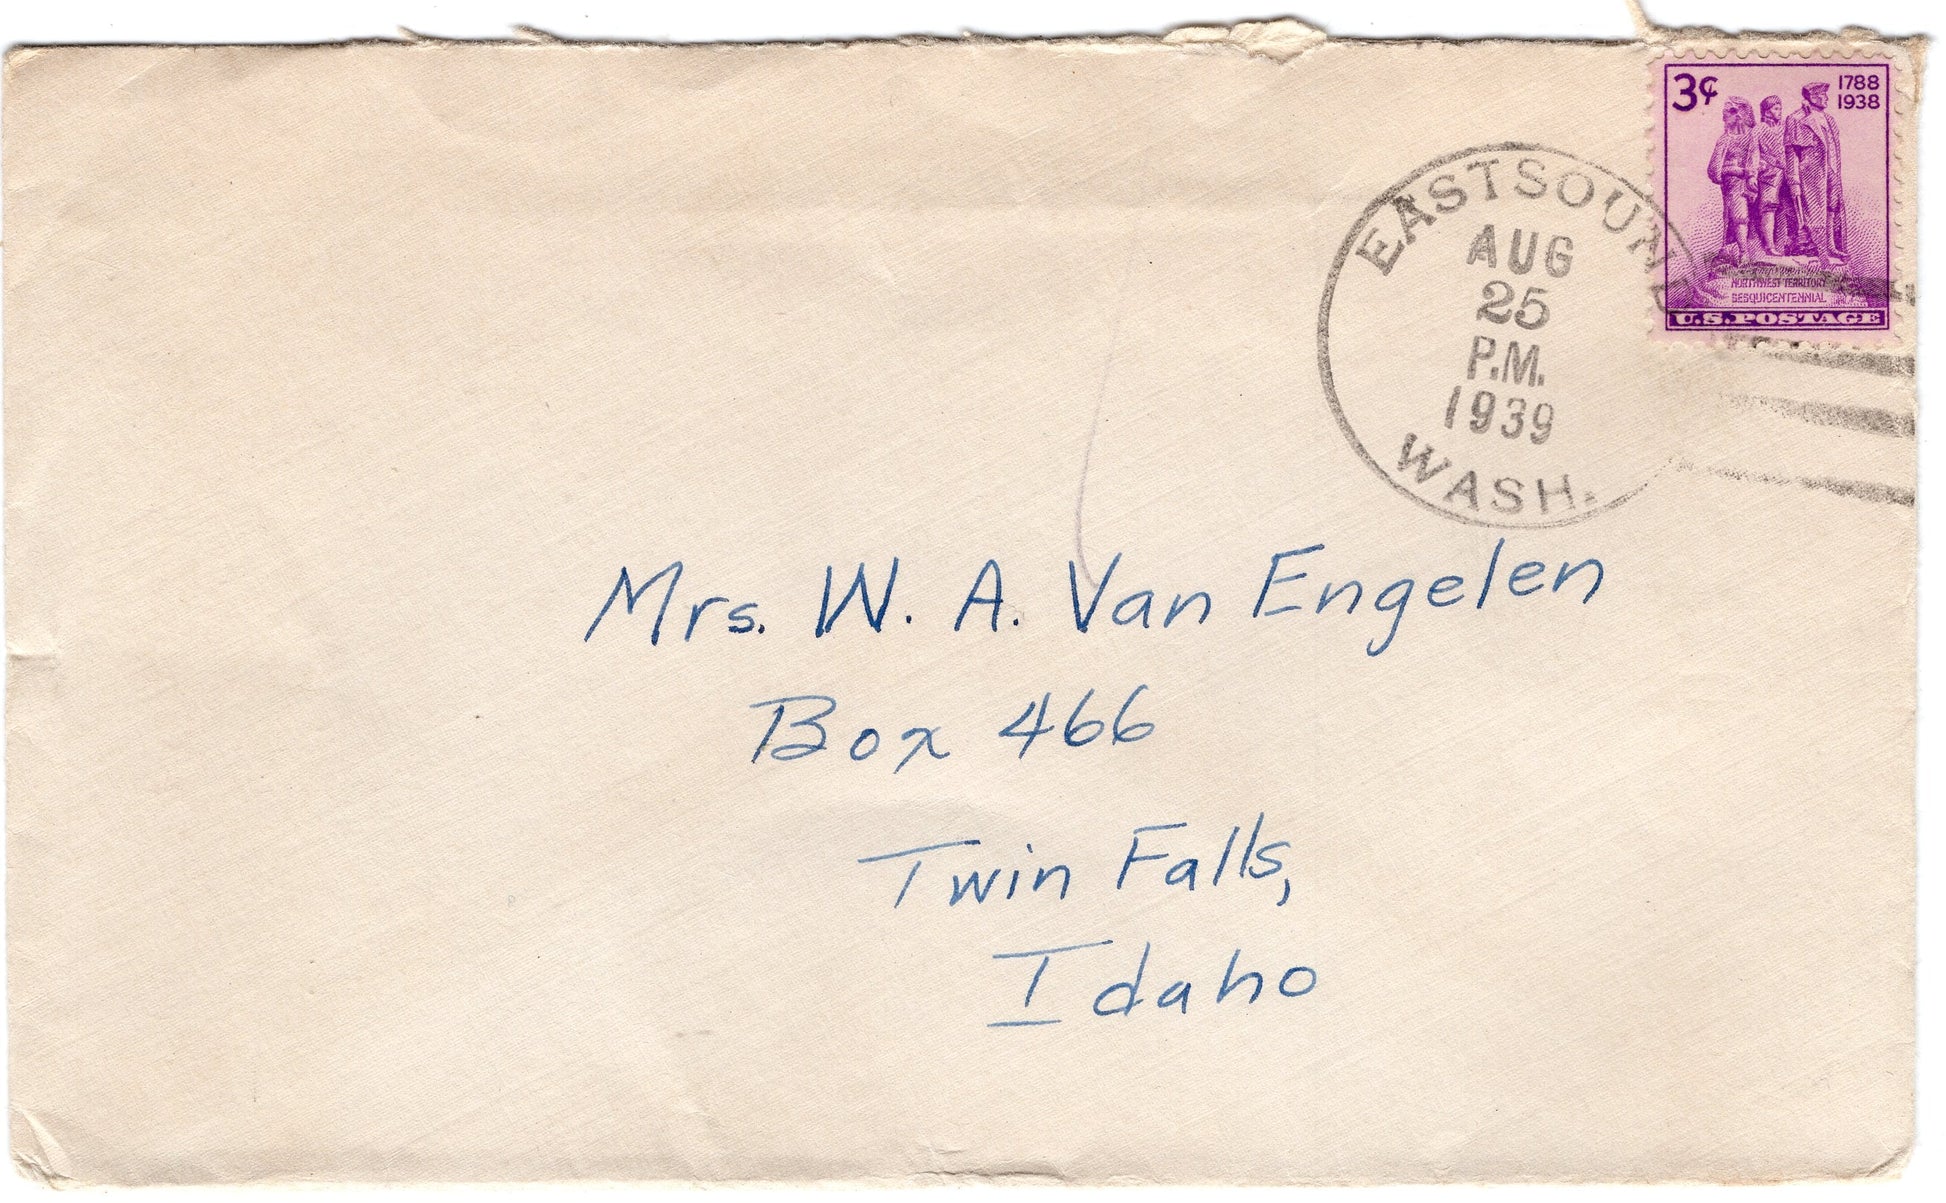 3¢
1788
1938
NORTHWEST TERRITORY
SESQUICENTENNIAL
U.S. POSTAGE
EASTSOUND
AUG
25
P.M.
1939
WASH.
Mrs. W. A. Van Engelen
Box 466
Twin Falls,
Idaho